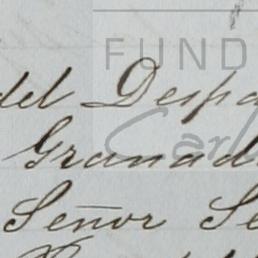 FUND
del Despa
Granad
Señor Se